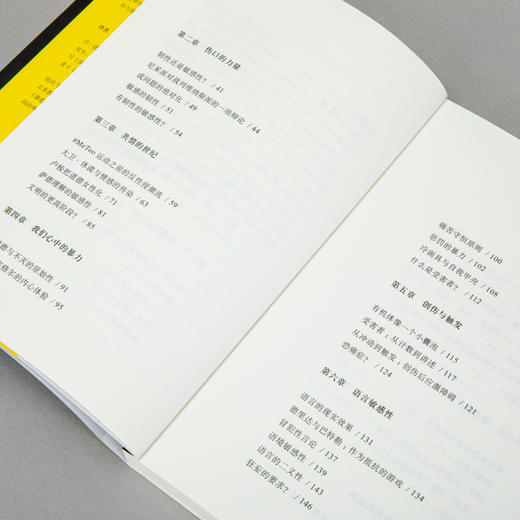 第二章 伤口的力量
韧性还是敏感性？/ 41
尼采派对战列维纳斯派的一场辩论 / 44
敌问题的绝对化 / 49
敏感的韧性 / 51
有韧性的敏感性？/ 54
第三章 共情的世纪
#MeToo 运动之前的反性侵潮流 / 59
大卫·休谟与情感的传染 / 63
卢梭把道德女性化 / 71
萨德理解的敏感性 / 81
文明的更高阶段？/ 85
第四章 我们心中的暴力
德与不灭的原始性 / 91
格尔的内心体验 / 95
痛苦守恒原则 / 100
惩罚的暴力 / 102
冷面具与自我甲壳 / 108
什么是受害者？/ 112
第五章 创伤与触发
有机体像一个小囊泡 / 115
受害者：从计数到讲述 / 117
从冲动到触发：创伤后应激障碍 / 121
恐痛症？/ 124
第六章 语言敏感性
语言的现实效果 / 131
德里达与巴特勒：作为抵抗的游戏 / 134
冒犯性言论 / 137
语境敏感性 / 139
语言的二义性 / 143
狂妄的要求？/ 146